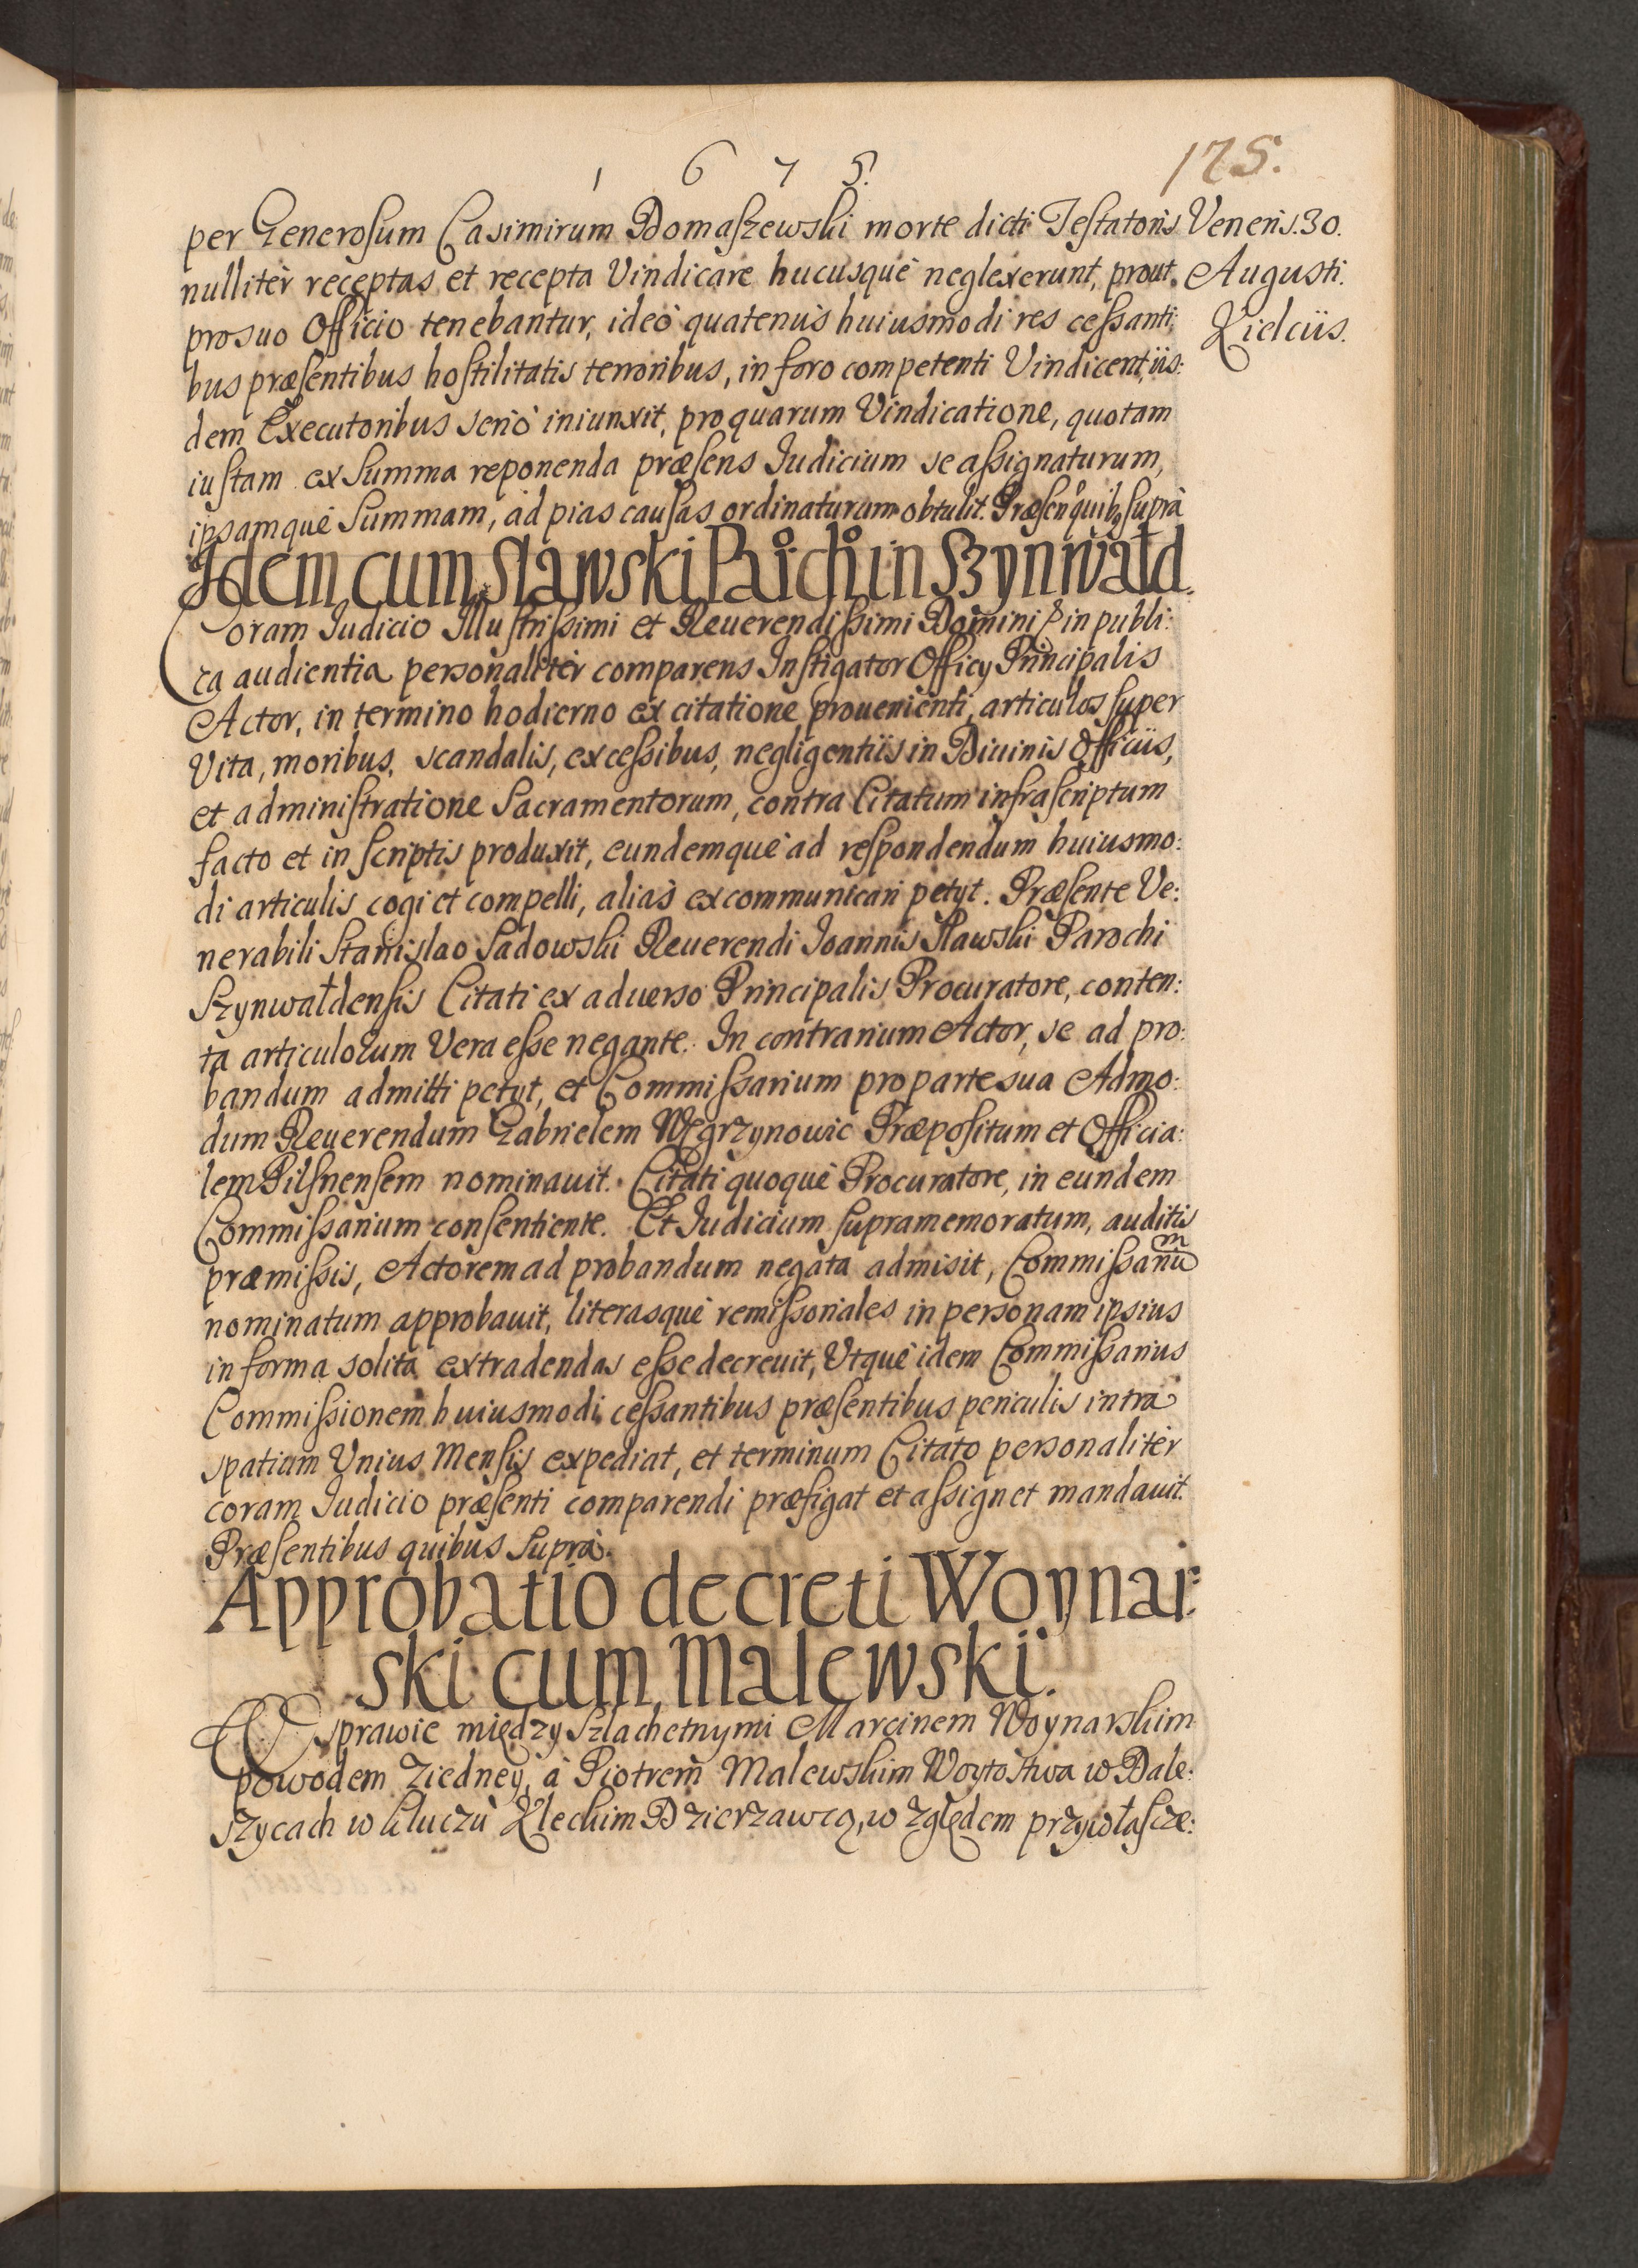 1 6 7 5.
175.
per Generosum Casimirum Domaszewski morte dicti Testatoris
nullitèr receptas et recepta Vindicare hucusquè neglexerunt, prout
pro suo Officio tenebantur, ideò quatenùs huiusmodi res cessanti,
bus præsentibus hostilitatis terroribus, in foro competenti Vindicent, iis:
dem Executoribus seriò iniunxit, pro quarum Vindicatione, quotam
iustam ex Summa reponenda præsens Iudicium se assignaturum,
ipsamquè Summam, ad pias causas ordinaturam obtulit. Præsen quib9 suprà
Veneris. 30.
Augusti.
Kielciis.
Idem cum Sławski Paro͠ch in Szynwałd.
Coram Iudicio Illustrissimi et Reuerendissimi Domini & in publi:
ca audientia personalitèr comparens Instigator Officy Principalis
Actor, in termino hodierno ex citatione prouenienti, articulos super
Vita, moribus, scandalis, excessibus, negligentiis in Diuinis Officiis,
et administratione Sacramentorum, contra Citatum infrascriptum
facto et in scriptis produxit, eundemquè ad respondendum huiusmo:
di articulis cogi et compelli, aliàs excommunicari petyt. Præsente Ve:
nerabili Stanislao Sadowski Reuerendi Ioannis Sławski Parochi
Szynwałdensis Citati ex aduerso Principalis Procuratore, conten:
ta articulorum Vera esse negante. In contrarium Actor, se ad pro:
bandum admitti petyt, et Commissarium pro parte sua Admo:
dum Reuerendum Gabrielem Węgrzynowic Præpositum et Officia:
lem Pilsnensem nominauit. Citati quoquè Procuratore, in eundem
Commissarium consentiente. Et Iudicium supramemoratum, auditis
præmissis, Actorem ad probandum negata admisit, Commissariu m
nominatum approbauit, literasquè remissoriales in personam ipsius
in forma solita extradendas esse decreuit, Utquè idem Commissarius
Commissionem huiusmodi cessantibus præsentibus periculis intra
spatium Unius Mensis expediat, et terminum Citato personalitèr
coram Iudicio præsenti comparendi præfigat et assignet mandauit.
Præsentibus quibus Suprà.
Approbatio decreti Woynar:
ski cum Malewski.
W sprawie między Szlachetnymi Marcinem Woynarskim
powodem z iedney, à Piotrem Malewskim Woytostwa w Dale:
szycach w kluczù Kleckim Dzierzawcą, w względem przywłascze: